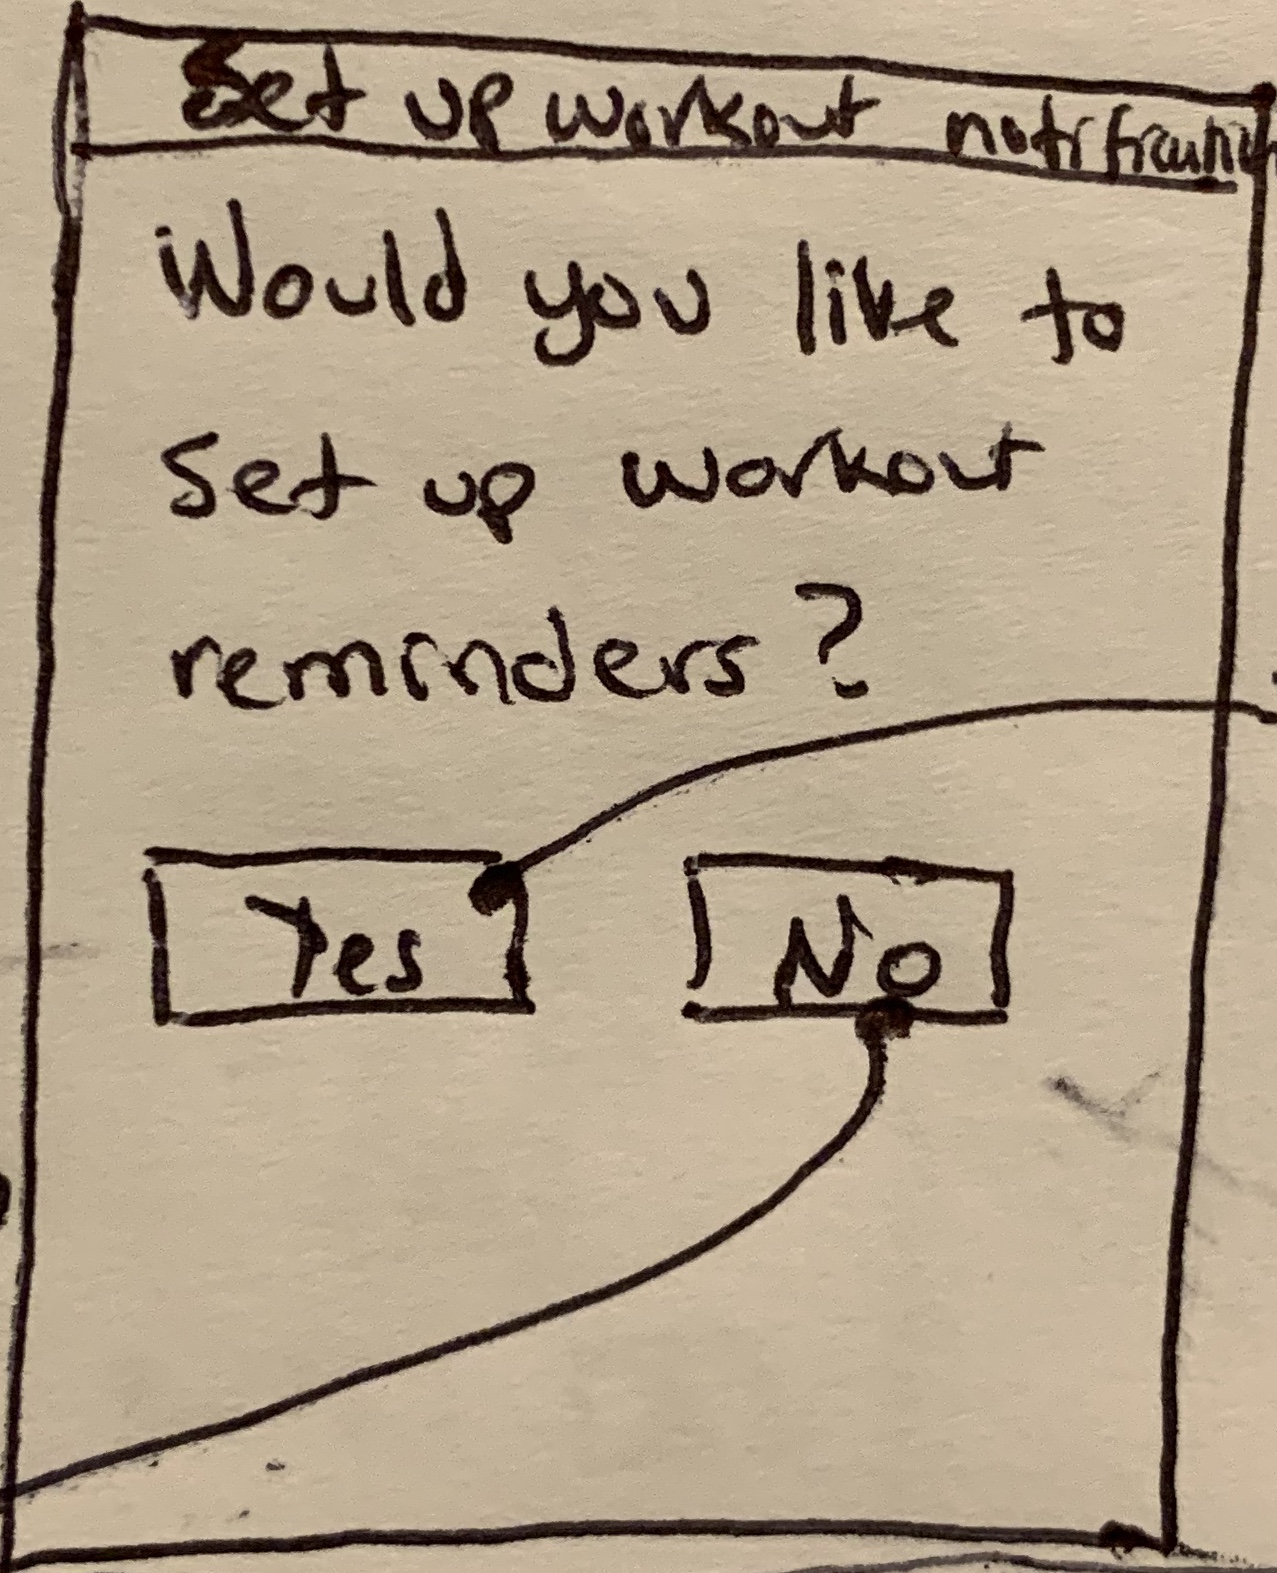 Set up workout
Would you like to
Set up workout
reminders?
Yes No